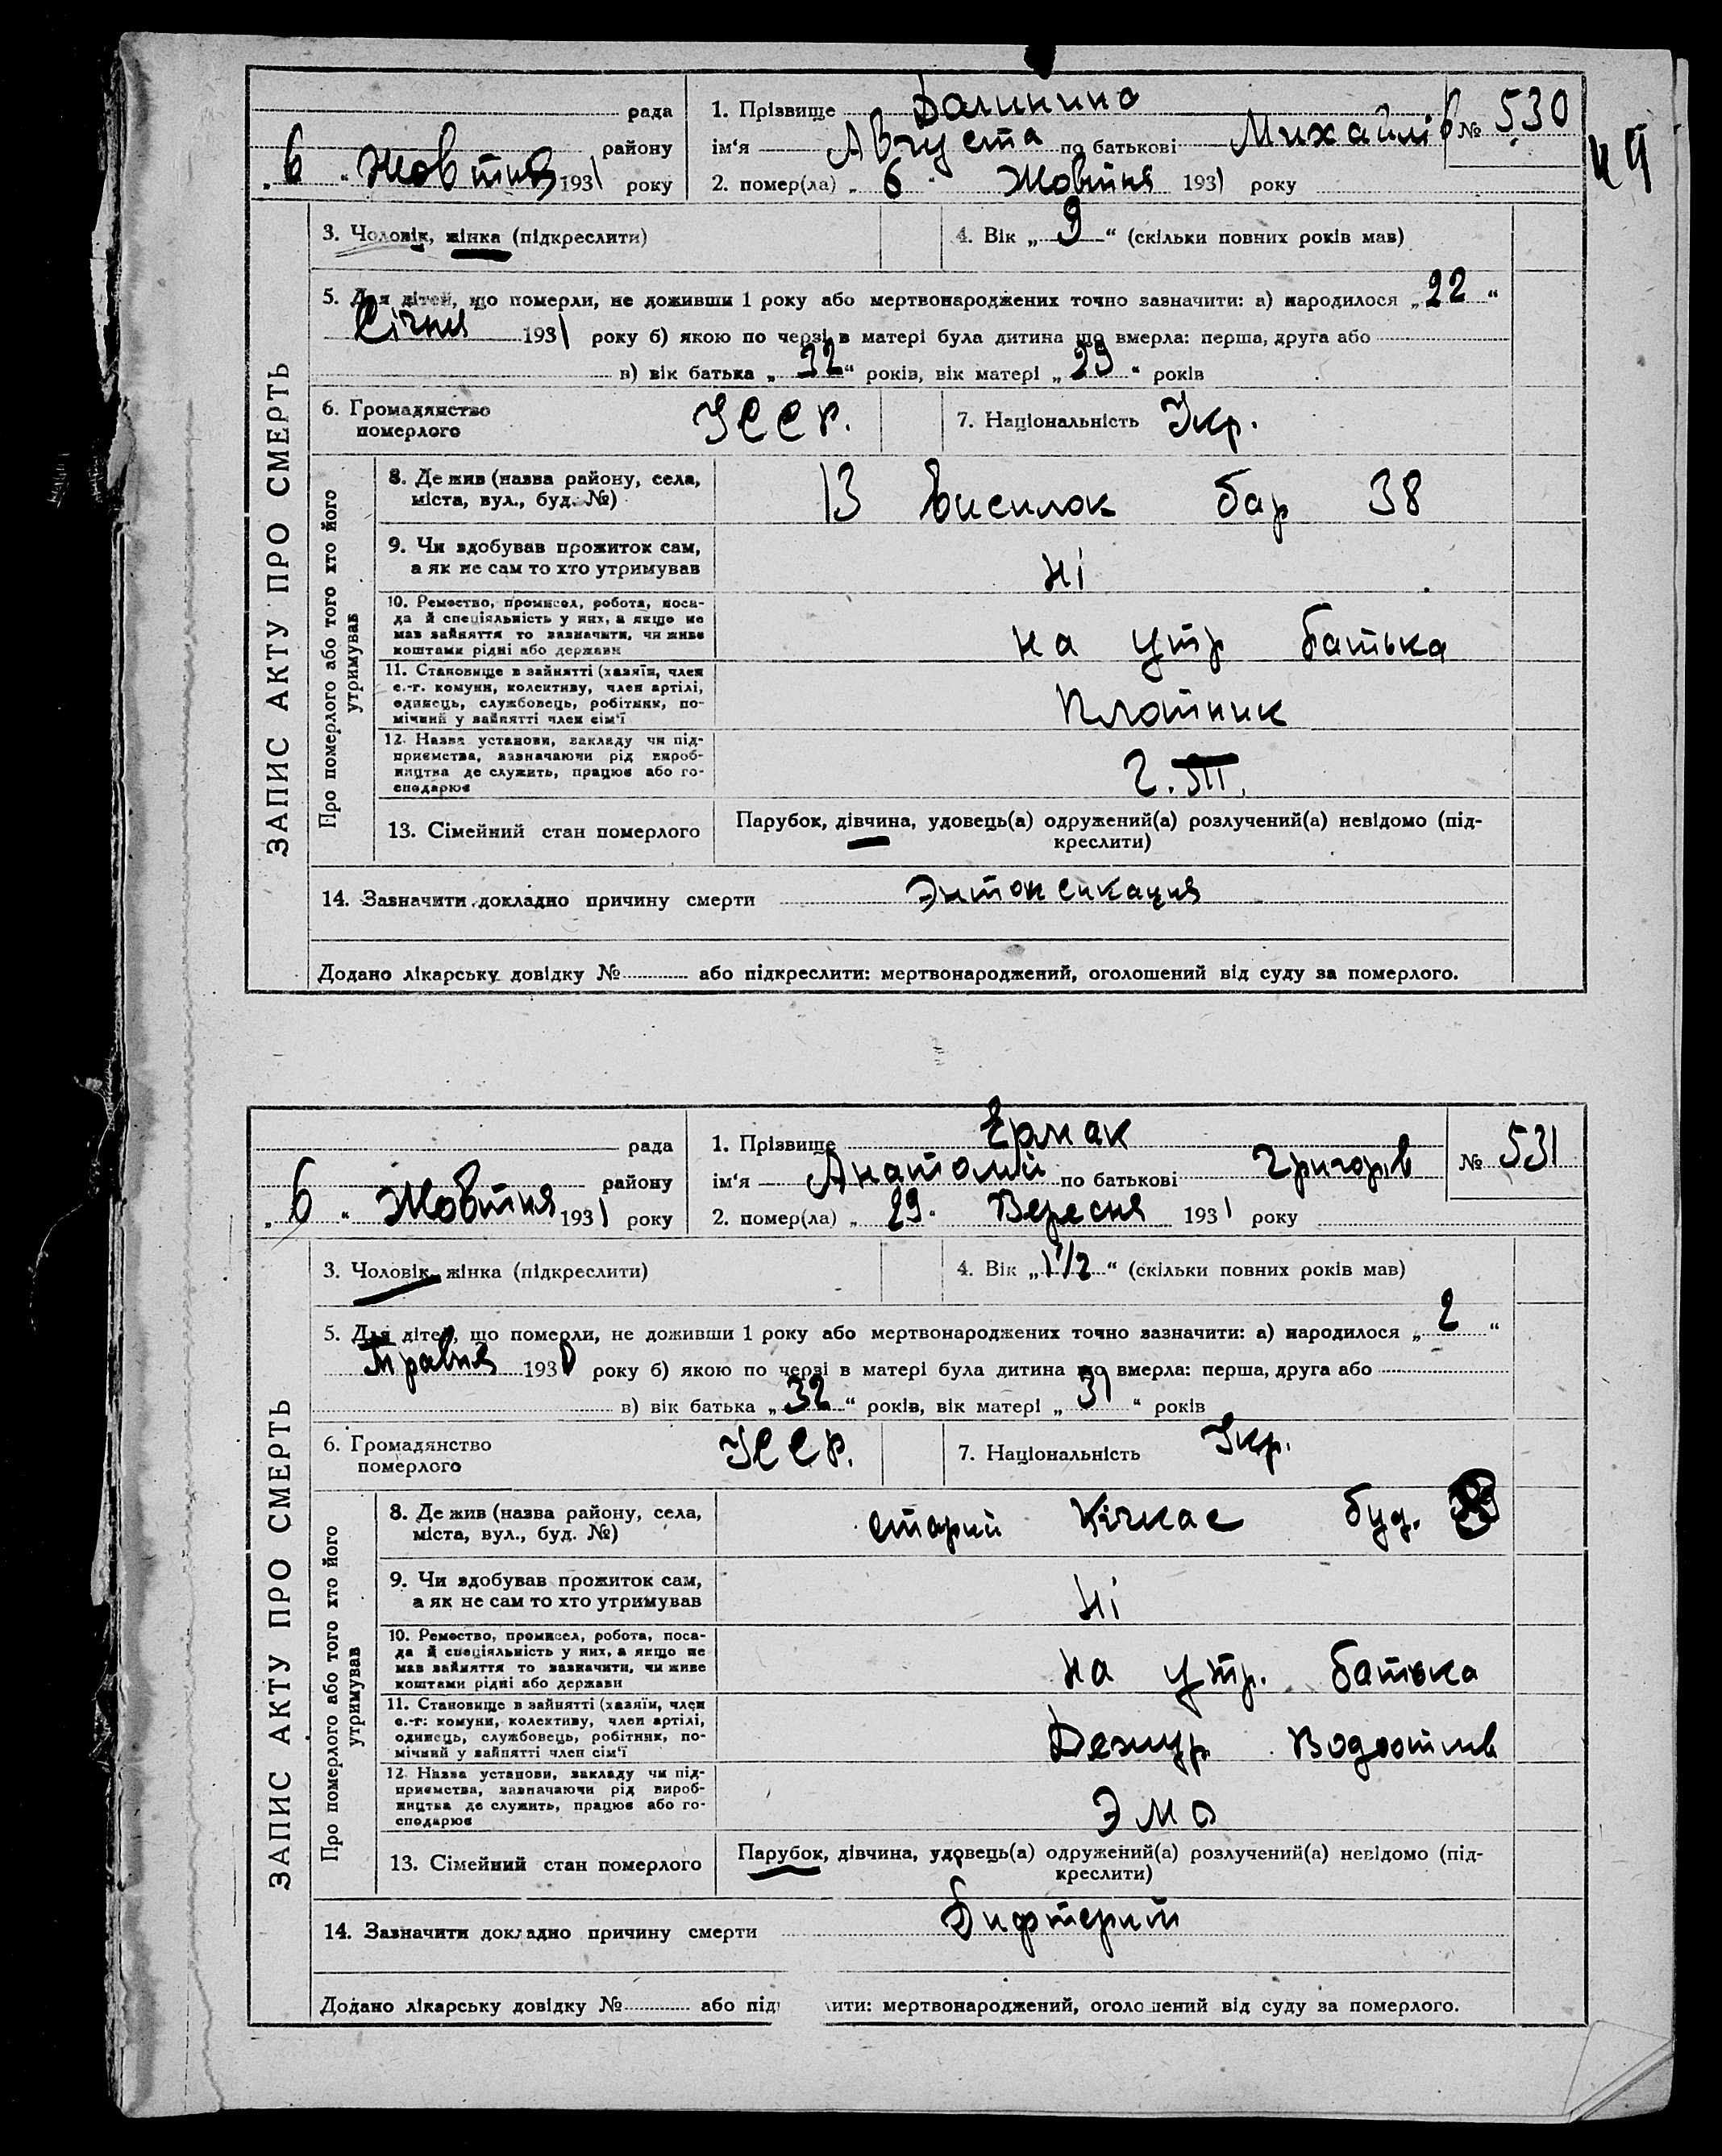 ЗАПИС АКТУ ПРО СМЕРТЬ
рада
району
„6“ Жовтня 1931 року
1. Прізвище Далинина
ім'я Августа по батькові Михайлів
№ 530
2. помер(ла) „6“ Жовтня 1931 року
3. Чоловік, жінка (підкреслити)
4. Вік „9“ (скільки повних років мав)
5. Для дітей, що померли, не доживши 1 року або мертвонароджених точно зазначити: а) народилося „22“
Січня 1931 року б) якою по черзі в матері була дитина що вмерла: перша, друга або
в) вік батька „32“ років, вік матері „29“ років
6. Громадянство
померлого
УССР.
7. Національність Укр.
Про померлого або того хто його
утримував
8. Де жив (назва району, села,
міста, вул., буд. №)
13 висилок бар 38
9. Чи здобував прожиток сам,
а як не сам то хто утримував
Ні
10. Ремество, промисел, робота, поса-
да й спеціяльність у них, а якщо не
мав зайняття то зазначити, чи живе
коштами рідні або держави
на утр батька
11. Становище в зайнятті (хазяїн, член
с.-г. комуни, колективу, член артілі,
одинець, службовець, робітник, по-
мічний у зайнятті член сім'ї
Плотник
12. Назва установи, закладу чи під-
приємства, зазначаючи рід вироб-
ництва де служить, працює або го-
сподарює
13. Сімейний стан померлого
Парубок, дівчина, удовець(а) одружений(а) розлучений(а) невідомо (під-
креслити)
14. Зазначити докладно причину смерти Энтоксикация
Додано лікарську довідку № або підкреслити: мертвонароджений, оголошений від суду за померлого.
ЗАПИС АКТУ ПРО СМЕРТЬ
рада
району
„6“ Жовтня 1931 року
1. Прізвище Ермак
ім'я Анатолий по батькові Григорів
№ 531
2. помер(ла) „29“ Вересня 1931 року
3. Чоловік, жінка (підкреслити)
4. Вік „1 1/2“ (скільки повних років мав)
5. Для дітей, що померли, не доживши 1 року або мертвонароджених точно зазначити: а) народилося „2“
Травня 1930 року б) якою по черзі в матері була дитина що вмерла: перша, друга або
в) вік батька „32“ років, вік матері „31“ років
6. Громадянство
померлого
УССР.
7. Національність Укр.
Про померлого або того хто його
утримував
8. Де жив (назва району, села,
міста, вул., буд. №)
старий Кічкас буд.
9. Чи здобував прожиток сам,
а як не сам то хто утримував
Ні
10. Ремество, промисел, робота, поса-
да й спеціяльність у них, а якщо не
мав зайняття то зазначити, чи живе
коштами рідні або держави
на утр. батька
11. Становище в зайнятті (хазяїн, член
с.-г. комуни, колективу, член артілі,
одинець, службовець, робітник, по-
мічний у зайнятті член сім'ї
Дежур Водоотлив
12. Назва установи, закладу чи під-
приємства, зазначаючи рід вироб-
ництва де служить, працює або го-
сподарює
ЭМО
13. Сімейний стан померлого
Парубок, дівчина, удовець(а) одружений(а) розлучений(а) невідомо (під-
креслити)
14. Зазначити докладно причину смерти Дифтерит
Додано лікарську довідку № або під ити: мертвонароджений, оголошений від суду за померлого.